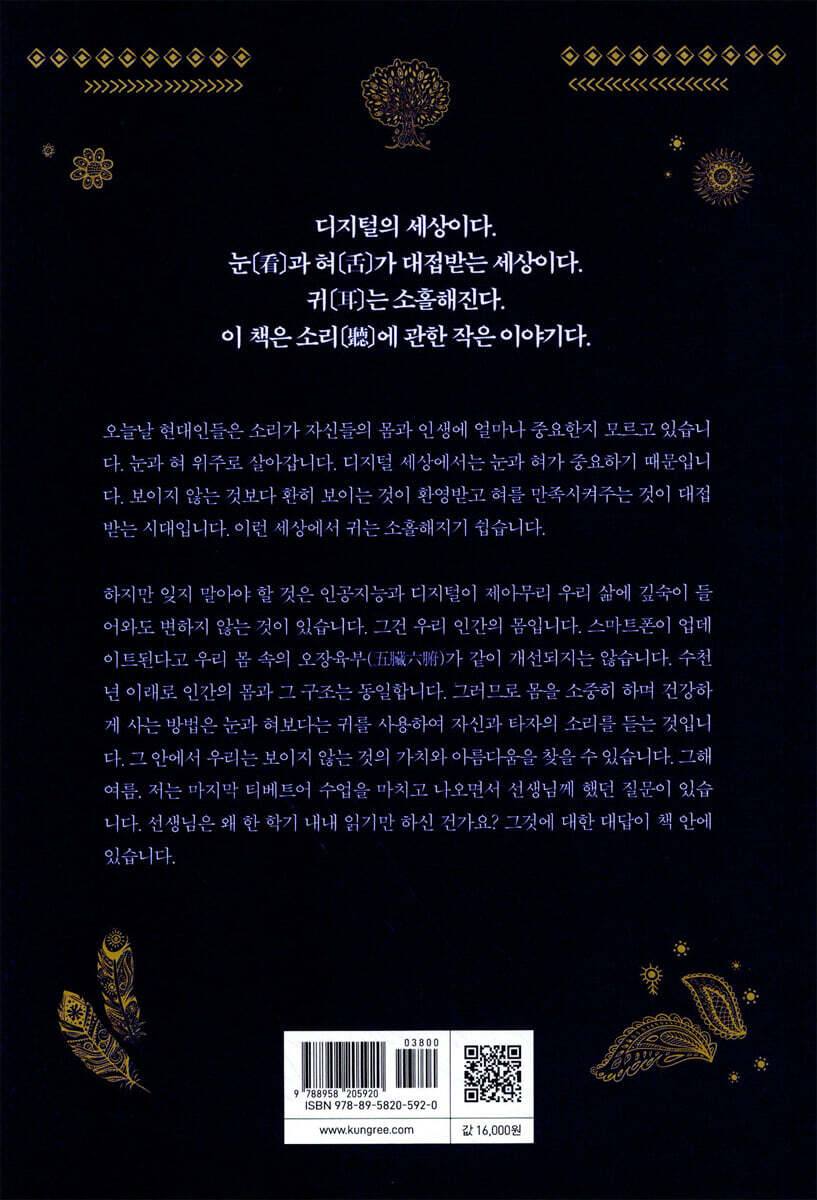 디지털의 세상이다.
눈〔看〕과 혀〔舌〕가 대접받는 세상이다.
귀〔耳〕는 소홀해진다.
이 책은 소리〔聽〕에 관한 작은 이야기다.
오늘날 현대인들은 소리가 자신들의 몸과 인생에 얼마나 중요한지 모르고 있습니
다. 눈과 혀 위주로 살아갑니다. 디지털 세상에서는 눈과 혀가 중요하기 때문입니
다. 보이지 않는 것보다 환히 보이는 것이 환영받고 혀를 만족시켜주는 것이 대접
받는 시대입니다. 이런 세상에서 귀는 소홀해지기 쉽습니다.
하지만 잊지 말아야 할 것은 인공지능과 디지털이 제아무리 우리 삶에 깊숙이 들
어와도 변하지 않는 것이 있습니다. 그건 우리 인간의 몸입니다. 스마트폰이 업데
이트된다고 우리 몸 속의 오장육부(五臟六腑)가 같이 개선되지는 않습니다. 수천
년 이래로 인간의 몸과 그 구조는 동일합니다. 그러므로 몸을 소중히 하며 건강하
게 사는 방법은 눈과 혀보다는 귀를 사용하여 자신과 타자의 소리를 듣는 것입니
다. 그 안에서 우리는 보이지 않는 것의 가치와 아름다움을 찾을 수 있습니다. 그해
여름. 저는 마지막 티베트어 수업을 마치고 나오면서 선생님께 했던 질문이 있습
니다. 선생님은 왜 한 학기 내내 읽기만 하신 건가요? 그것에 대한 대답이 책 안에
있습니다.
03800
9 788958 205920
ISBN 978-89-5820-592-0
www.kungree.com
값 16,000원